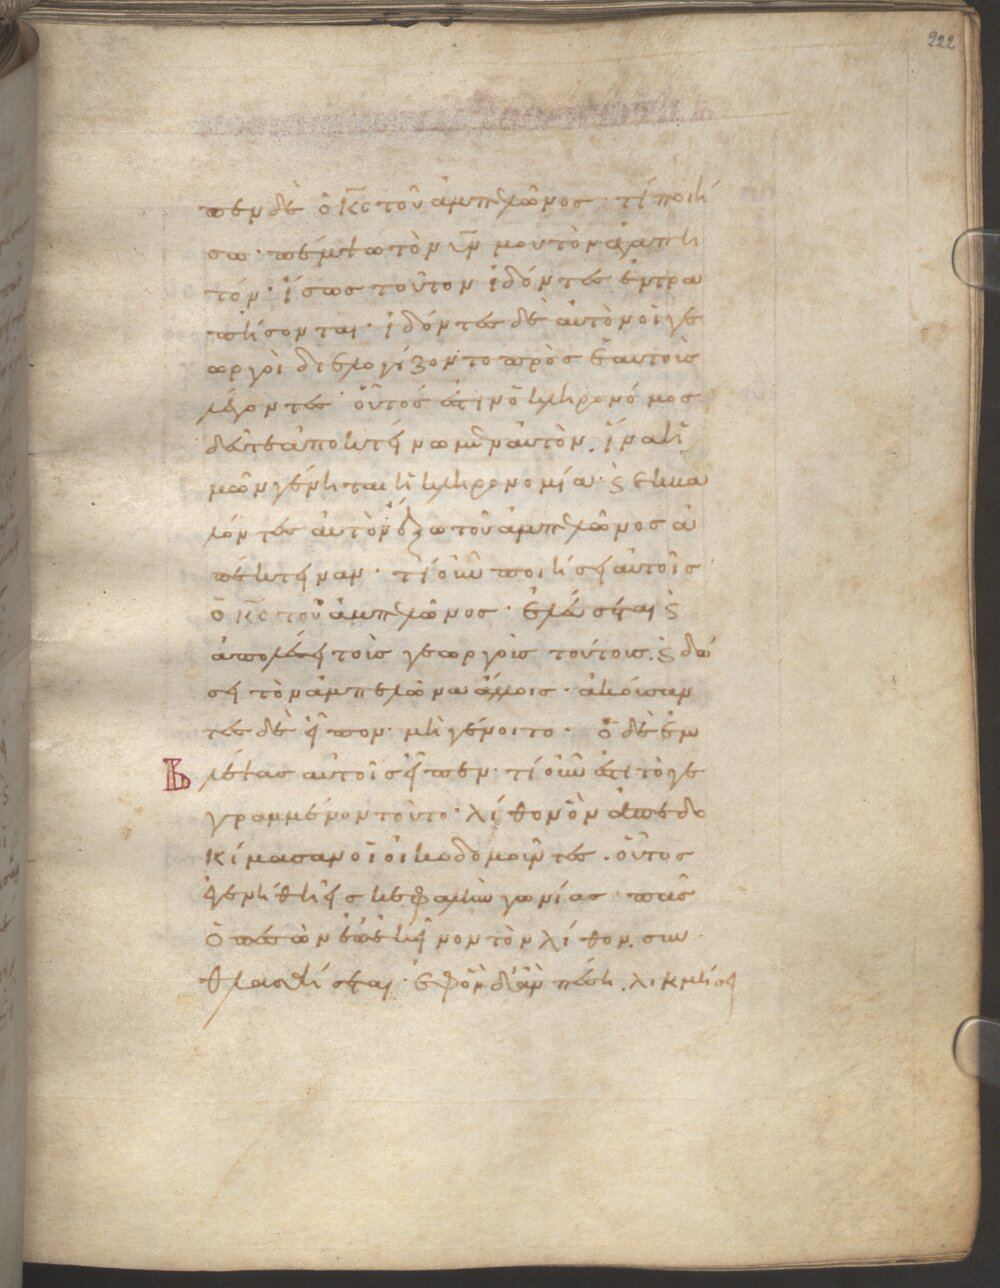 222
πεν δὲ ὁ κ̅ς τοῦ ἀμπελῶνος· τί ποιή
σω· πέμψω τὸν υ̅ν μου τὸν ἀγαπη
τόν· ἴσως τοῦτον ἰδόντες ἐντρα
πήσονται· ἰδόντες δὲ αὐτὸν οἱ γε
ωργοὶ διελογίζοντο πρὸς ἑαυτοὺς
λέγοντες· οὗτός ἐστιν ὁ κληρονόμος
δεῦτε ἀποκτείνωμεν αὐτὸν. ἵνα ἡ
μῶν γένηται ἡ κληρονομία· ϛ ἐκβα
λόντες αὐτὸν ἔξω τοῦ ἀμπελῶνος ἀ
πέκτειναν· τί οὖν ποιήσει αὐτοῖς
ὁ κ̅ς τοῦ ἀμπελῶνος· ἐλεύσεται ϛ
ἀπολέσει τοὺς γεωργοὺς τούτους. ϛ δώ
σει τὸν ἀμπελῶνα ἄλλοις· ἀκούσαν
τες δὲ εἶπον· μὴ γένοιτο· ὁ δὲ ἐμ
βλέψας αὐτοῖς εἶπεν· τί οὖν ἐστι τὸ γε
γραμμένον τοῦτο· λίθον ὃν ἀπεδο
κίμασαν οἱ οἰκοδομοῦντες. οὗτος
ἐγενήθη εἰς κεφαλὴν γωνίας· πᾶς
ὁ πεσὼν ἐπ' ἐκεῖνον τὸν λίθον. συν
θλασθήσεται· ἐφ' ὃν δ' ἂν πέσῃ. λικμήσει